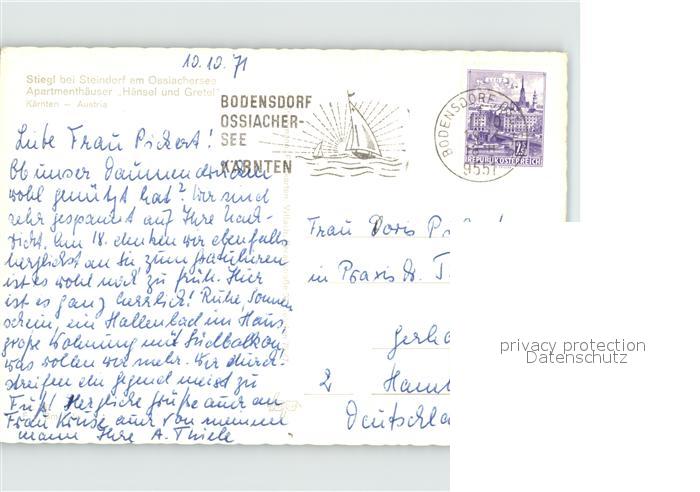 10.10.71
Stiegl bei Steindorf am Ossiachersee
Apartmenthäuser „Hänsel und Gretel"
Kärnten – Austria
BODENSDORF
OSSIACHER-
SEE
KÄRNTEN
BODENSDORF
9551
REPUBLIK ÖSTERREICH
Liebe Frau Pickert!
Ob unser Daumendrücken
wohl genützt hat? Wir sind
sehr gespannt auf Ihre Nach-
richt. Am 18. denken wir ebenfalls
herzlichst an Sie zum gratulieren
ist es wohl noch zu früh. Hier
ist es ganz herrlich! Ruhe, Sonnen
schein, ein Hallenbad im Haus,
große Wohnung mit Südbalkon
was wollen wir mehr. Wir durch-
streifen die Gegend meist zu
Fuß! Herzliche Grüße auch an
Frau Kruse auch von meinem
Mann Ihre A. Thiele
Frau Doris
in Praxis Dr. T.
Gerha
2 Hann
Deutschla
privacy protection
Datenschutz